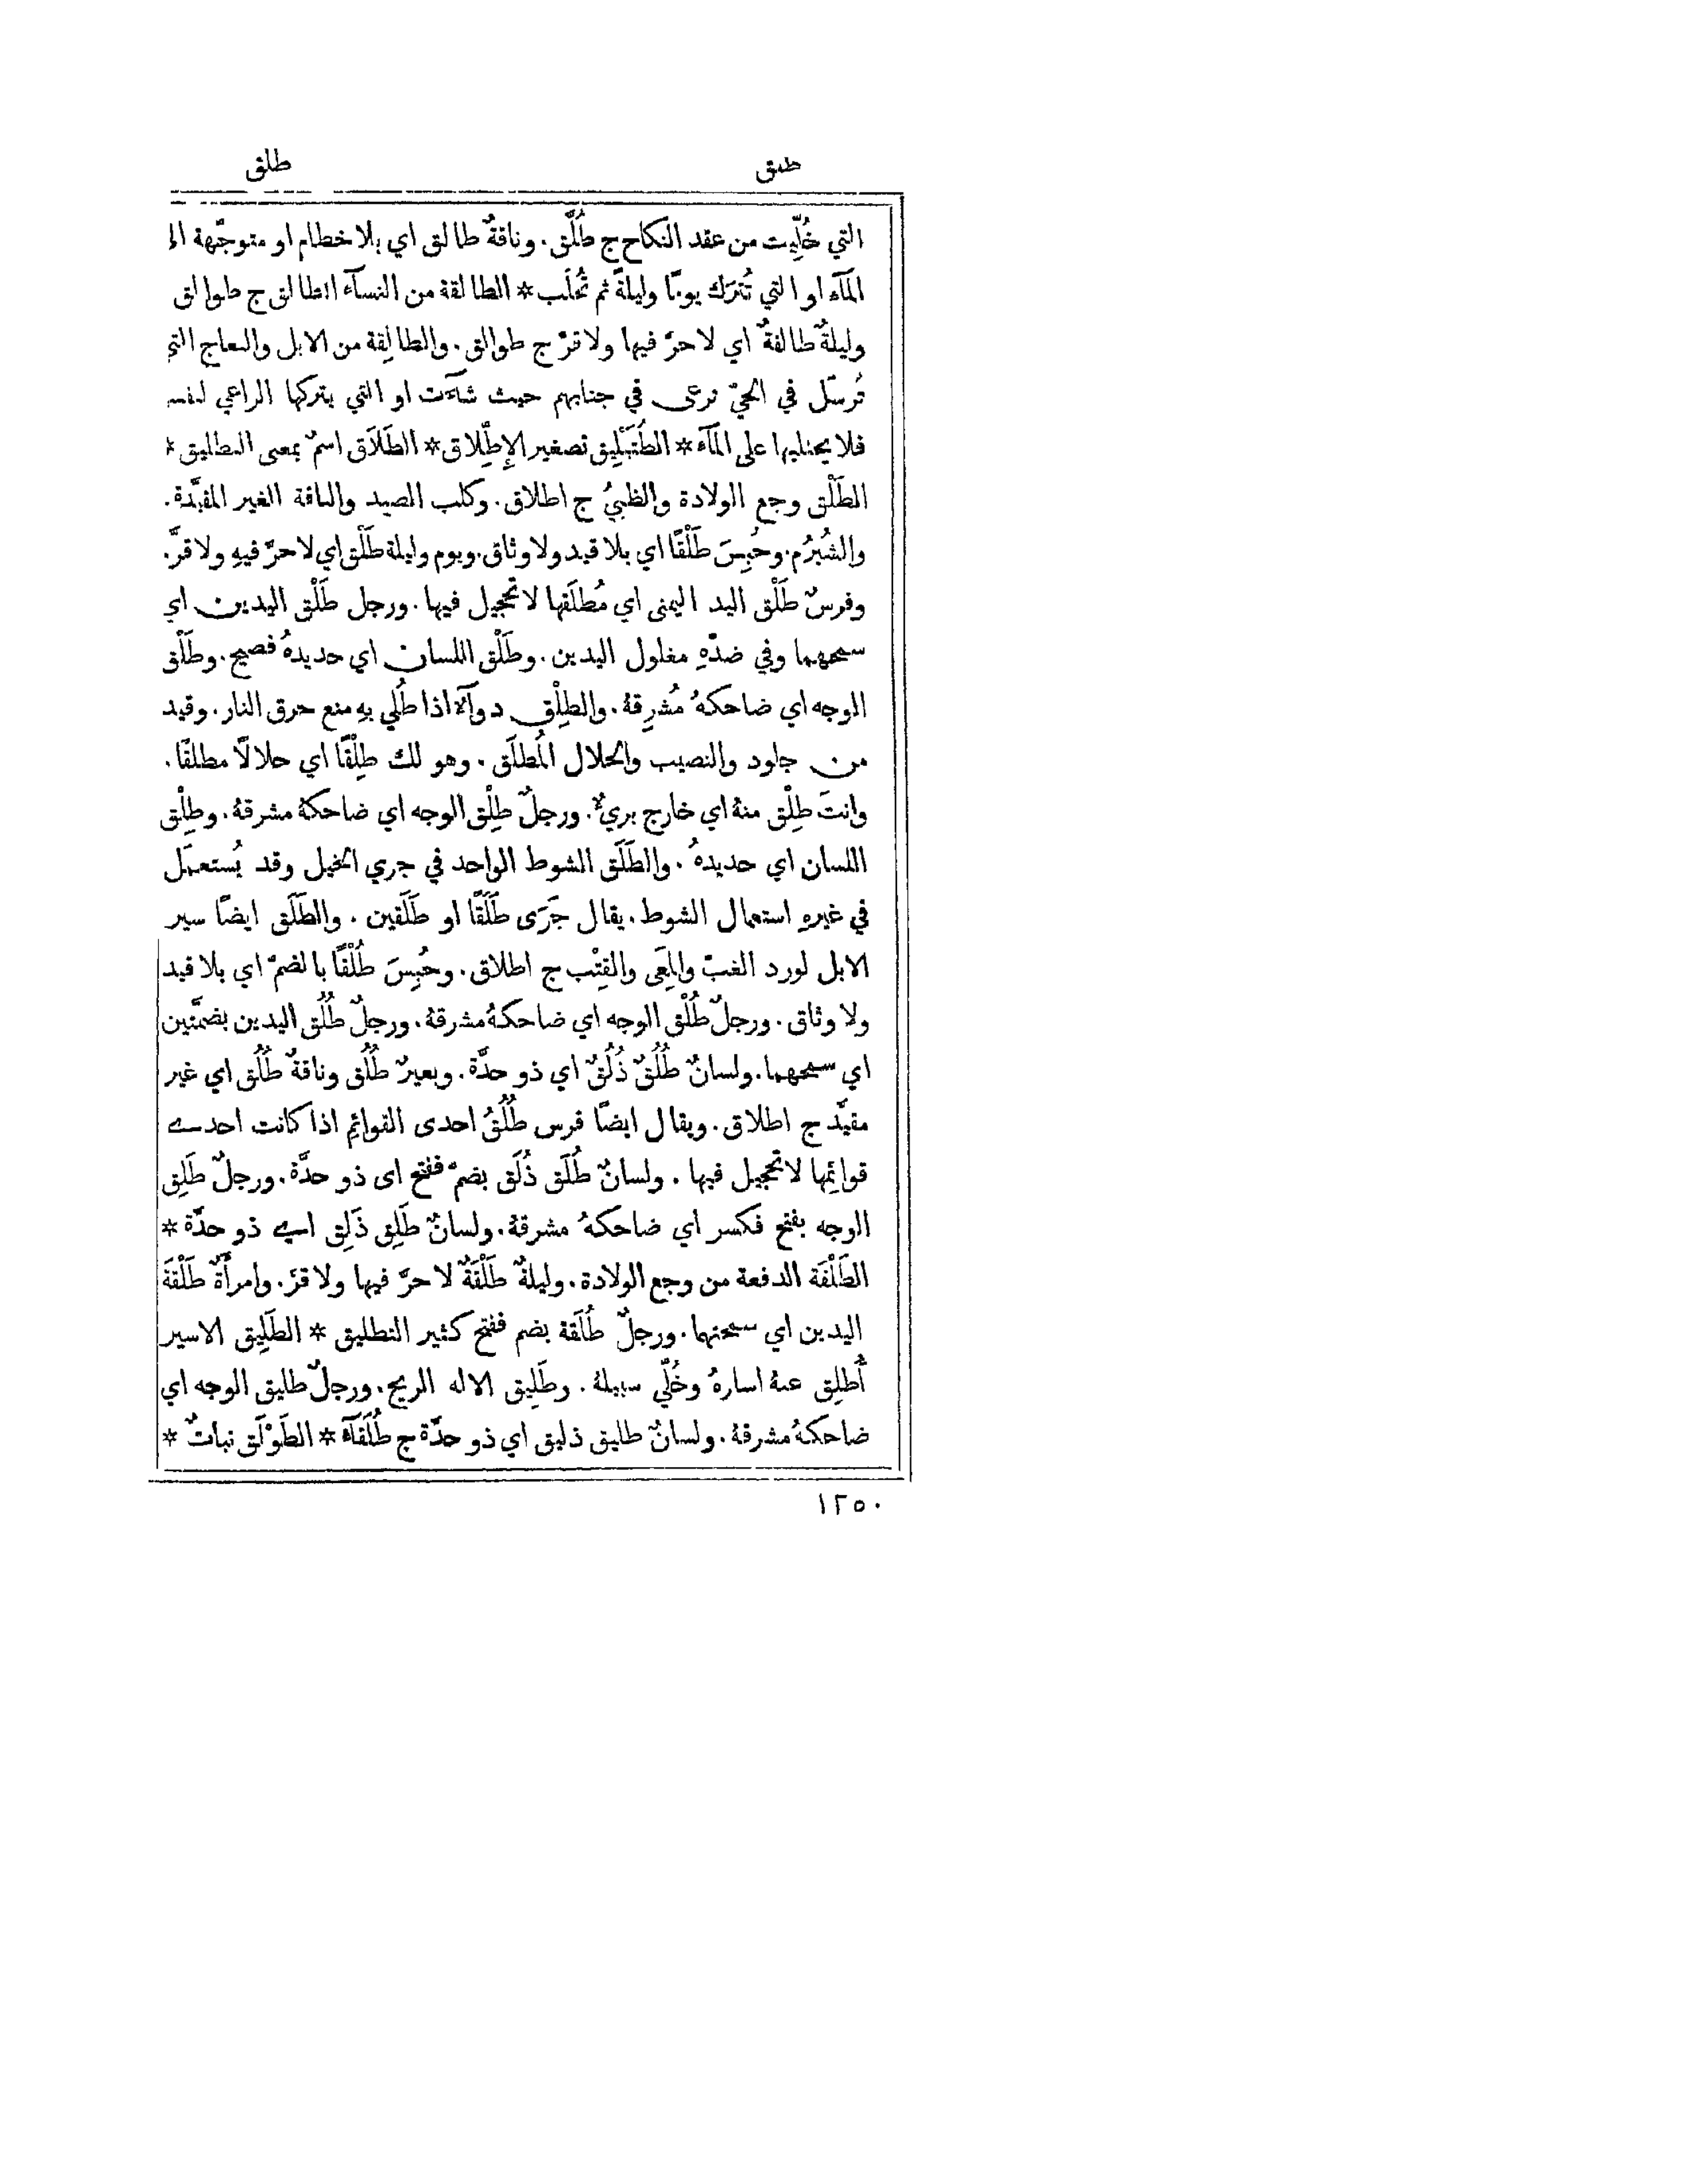 طلق طلق
التي خُلِّيت من عقد النكاح ج طُلَّق. وناقةٌ طالق اي بلا خطام او متوجّهة الى
المآء او التي تُترَك يومًا وليلةً ثم تُحلَب * الطالقة من النسآء الطالق ج طوالق
وليلةٌ طالقةٌ اي لا حرّ فيها ولا قرّ ج طوالق. والطالِقة من الابل والنعاج التي
تُرسَل في الحيّ ترعى في جنابهم حيث شآءَت او التي يتركها الراعي لنفسه
فلا يحتلبها على المآء * الطُتَيْلِيق تصغير الإِطِّلاق * الطَلَاق اسمٌ بمعنى التطليق *
الطَلْق وجع الولادة والظبيُ ج اطلاق. وكلب الصيد والناقة الغير المقيَّدة.
والشُبرُم. وحُبِسَ طَلْقًا اي بلا قيد ولا وثاق. ويوم وليلة طَلْق اي لا حرّ فيهِ ولا قرّ.
وفرسٌ طَلْق اليد اليمنى اي مُطلَقها لا تحجيل فيها. ورجل طَلْق اليدين اي
سمحهما وفي ضدّهِ مغلول اليدين. وطَلْق اللسان اي حديدهُ فصيح. وطَلْق
الوجه اي ضاحكهُ مُشرِقهُ. والطِلْق دوآءٌ اذا طُلي بهِ منع حرق النار. وقيد
من جلود والنصيب والحلال المُطلَق. وهو لك طِلْقًا اي حلالًا مطلقًا.
وانتَ طِلْق منهُ اي خارج بريءٌ. ورجلٌ طِلْق الوجه اي ضاحكهُ مشرقهُ. وطِلْق
اللسان اي حديدهُ. والطَلَق الشوط الواحد في جري الخيل وقد يُستعمَل
في غيرهِ استعمال الشوط. يقال جَرَى طَلَقًا او طَلَقين. والطَلَق ايضًا سير
الابل لورد الغبّ والمِعَى والقِتْب ج اطلاق. وحُبِسَ طُلْقًا بالضمّ اي بلا قيد
ولا وثاق. ورجلٌ طُلْق الوجه اي ضاحكهُ مشرقهُ. ورجلٌ طُلُق اليدين بضمَّتين
اي سمحهما. ولسانٌ طُلُقٌ ذُلُقٌ اي ذو حدَّة. وبعيرٌ طُلُق وناقةٌ طُلُق اي غير
مقيَّد ج اطلاق. ويقال ايضًا فرس طُلُقُ احدى القوائم اذا كانت احدى
قوائمها لا تحجيل فيها. ولسانٌ طُلَق ذُلَق بضمّ ففتح اى ذو حدَّة. ورجلٌ طَلِق
الوجه بفتح فكسر اي ضاحكهُ مشرقهُ. ولسانٌ طَلِق ذَلِق اي ذو حدَّة *
الطَلْقَة الدفعة من وجع الولادة. وليلةٌ طَلْقَةٌ لا حرَّ فيها ولا قرَّ. وامرأَةٌ طَلْقَة
اليدين اي سمحتهما. ورجلٌ طُلَقة بضم ففتح كثير التطليق * الطَلِيق الاسير
أُطلِق عنهُ اسارهُ وخُلِّي سبيلهُ. وطَلِيق الاله الريح. ورجلٌ طليق الوجه اي
ضاحكهُ مشرقهُ. ولسانٌ طليق ذليق اي ذو حدَّة ج طُلَقَآء * الطَوْلَق نباتٌ *
١٢٥٠